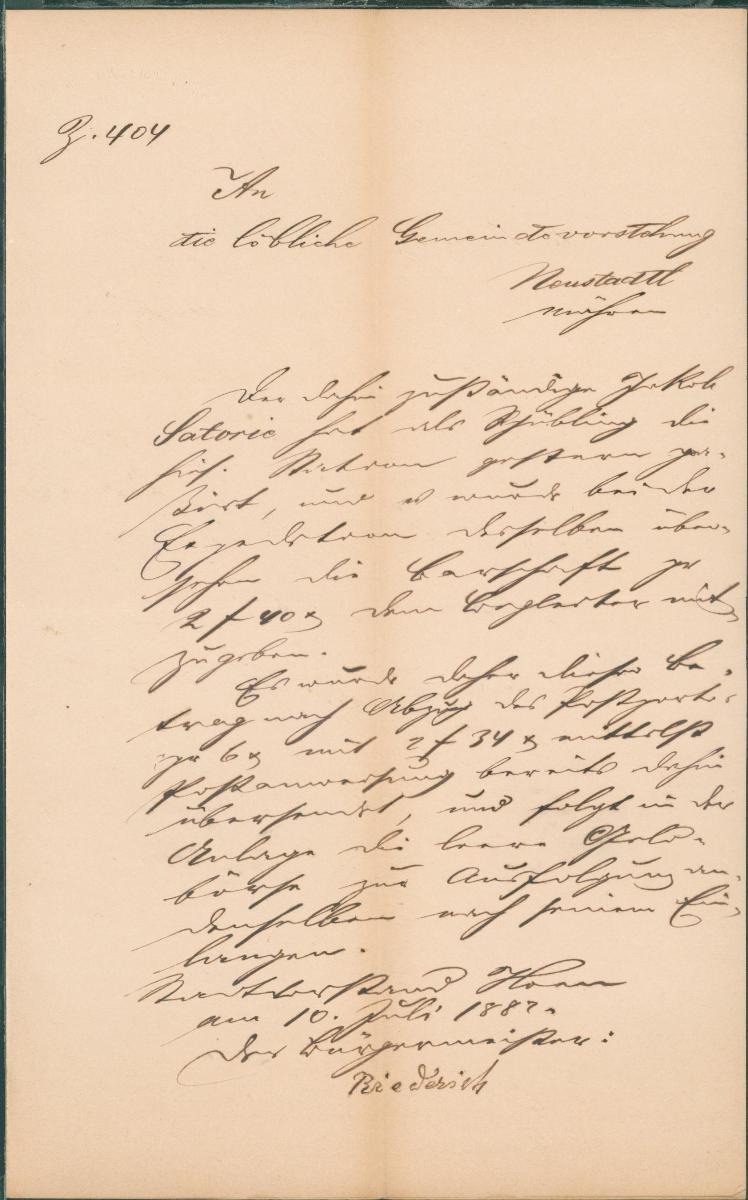 Z. 404
An
die löbliche Gemeindevorstehung
Neustadtl
Mähren
Der dahin zuständige Jakob
Satorie hat als Schübling die
hies. Station gestern pas-
sirt, und es wurde bei der
Expedition desselben über-
sehen die Barschaft pr
2 f 40 x dem Begleiter mit
zugeben.
Es wurde daher dieser Be-
trag nach Abzug des Postporto
pr 6 x mit 2 f 34 x mittelst
Postanweisung bereits dahin
übersendet, und folgt in der
Anlage die leere Geld-
börse zur Ausfolgung an
denselben nach seinem Ein-
langen.
Stadtvorstand Horn
am 10. Juli 1887.
Der Bürgermeister: